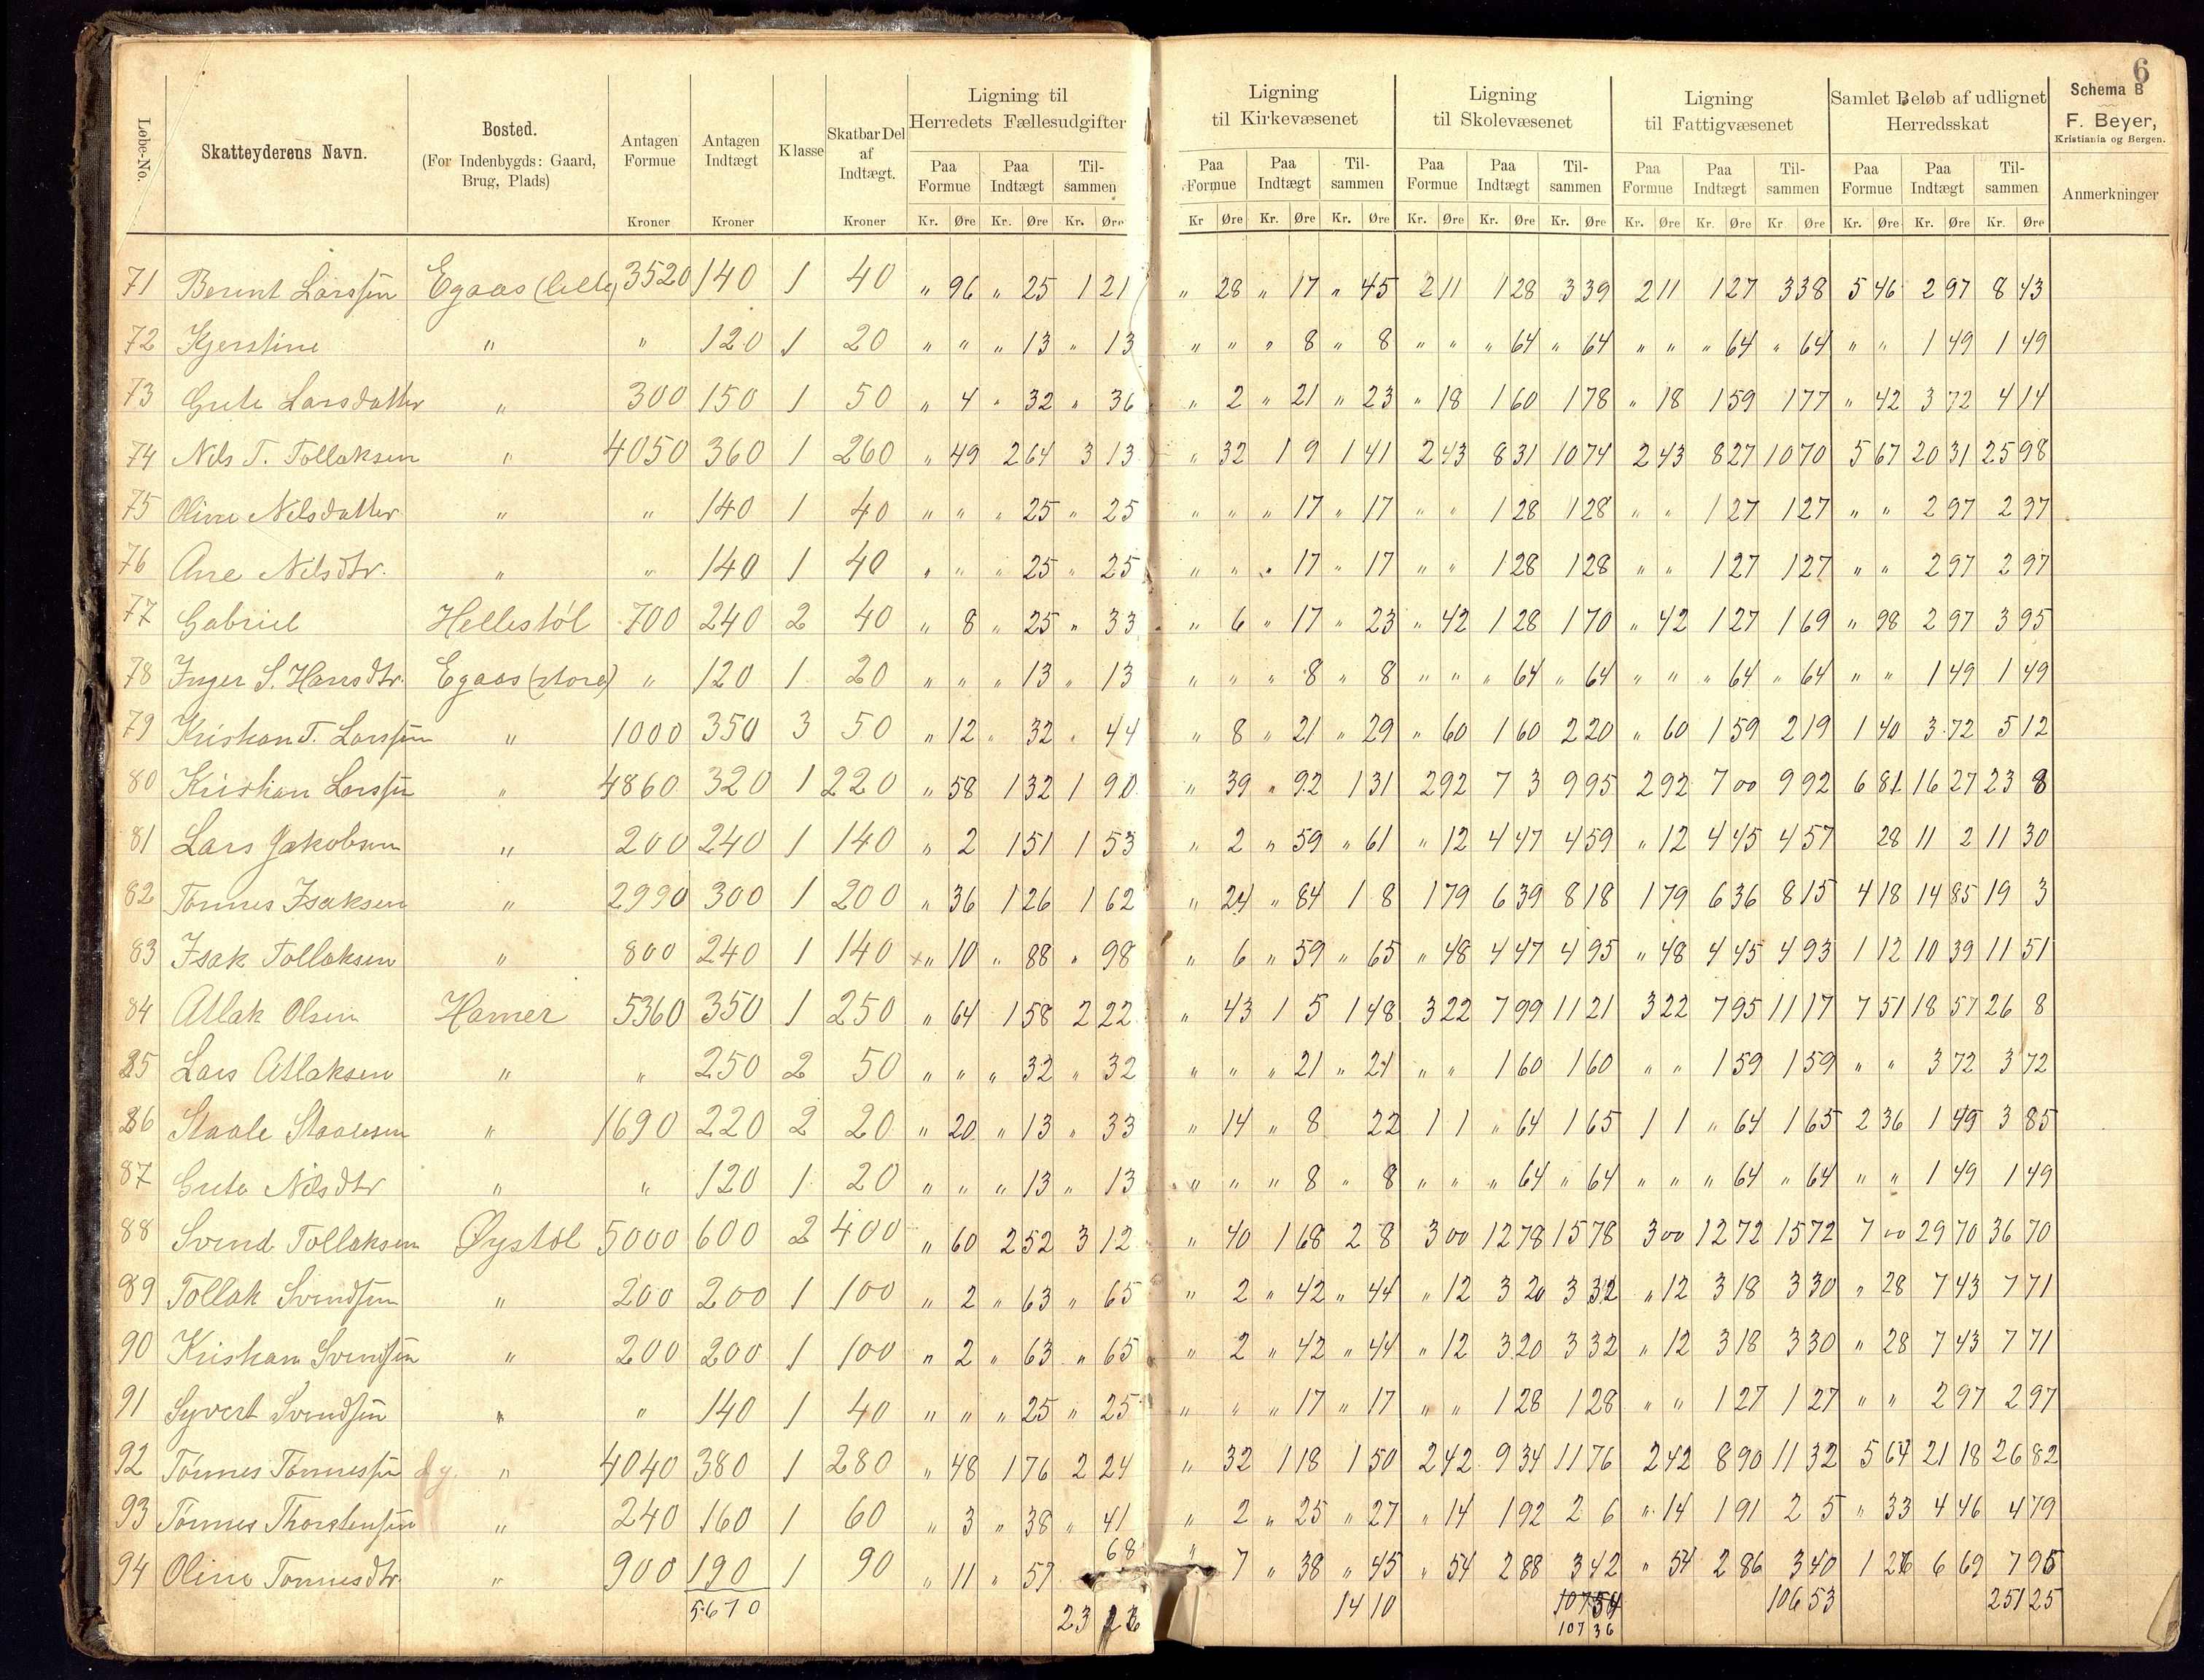 6
Løbe-No. | Skatteyderens Navn. | Bosted. (For Indenbygds: Gaard, Brug, Plads) | Antagen Formue Kroner | Antagen Indtægt Kroner | Klasse | Skatbar Del af Indtægt. Kroner | Ligning til Herredets Fællesudgifter | Ligning til Kirkevæsenet | Ligning til Skolevæsenet | Ligning til Fattigvæsenet | Samlet Beløb af udlignet Herredsskat | Schema B F. Beyer, Kristiania og Bergen. Anmerkninger
Paa Formue | Paa Indtægt | Tilsammen | Paa Formue | Paa Indtægt | Tilsammen | Paa Formue | Paa Indtægt | Tilsammen | Paa Formue | Paa Indtægt | Tilsammen | Paa Formue | Paa Indtægt | Tilsammen
Kr. Øre | Kr. Øre | Kr. Øre | Kr Øre | Kr. Øre | Kr. Øre | Kr. Øre | Kr. Øre | Kr. Øre | Kr. Øre | Kr. Øre | Kr Øre | Kr. Øre | Kr. Øre | Kr. Øre
71 Berent Larssen Egaas (lille) 3520 140 1 40 " 96 " 25 1 21 " 28 " 17 " 45 2 11 1 28 3 39 2 11 1 27 3 38 5 46 2 97 8 43
72 Kjerstine " " 120 1 20 " " " 13 " 13 " " " 8 " 8 " " " 64 " 64 " " " 64 " 64 " " 1 49 1 49
73 Grete Larsdatter " 300 150 1 50 " 4 " 32 " 36 " 2 " 21 " 23 " 18 1 60 1 78 " 18 1 59 1 77 " 42 3 72 4 14
74 Nils T. Tollaksen " 4050 360 1 260 " 49 2 64 3 13 " 32 1 9 1 41 2 43 8 31 10 74 2 43 8 27 10 70 5 67 20 31 25 98
75 Oline Nilsdatter " " 140 1 40 " " " 25 " 25 " " " 17 " 17 " " 1 28 1 28 " " 1 27 1 27 " " 2 97 2 97
76 Ane Nilsdtr. " " 140 1 40 " " " 25 " 25 " " " 17 " 17 " " 1 28 1 28 " " 1 27 1 27 " " 2 97 2 97
77 Gabriel Hellestøl 700 240 2 40 " 8 " 25 " 33 " 6 " 17 " 23 " 42 1 28 1 70 " 42 1 27 1 69 " 98 2 97 3 95
78 Inger S. Hansdtr. Egaas (store) " 120 1 20 " " " 13 " 13 " " " 8 " 8 " " " 64 " 64 " " " 64 " 64 " " 1 49 1 49
79 Kristian T. Larssen " 1000 350 3 50 " 12 " 32 " 44 " 8 " 21 " 29 " 60 1 60 2 20 " 60 1 59 2 19 1 40 3 72 5 12
80 Kristian Larssen " 4860 320 1 220 " 58 1 32 1 90 " 39 " 92 1 31 2 92 7 3 9 95 2 92 7 00 9 92 6 81 16 27 23 8
81 Lars Jakobsen " 200 240 1 140 " 2 1 51 1 53 " 2 " 59 " 61 " 12 4 47 4 59 " 12 4 45 4 57 28 11 2 11 30
82 Tønnes Isaksen " 2990 300 1 200 " 36 1 26 1 62 " 24 " 84 1 8 1 79 6 39 8 18 1 79 6 36 8 15 4 18 14 85 19 3
83 Isak Tollaksen " 800 240 1 140 × " 10 " 88 " 98 " 6 " 59 " 65 " 48 4 47 4 95 " 48 4 45 4 93 1 12 10 39 11 51
84 Atlak Olsen Hamer 5360 350 1 250 " 64 1 58 2 22 " 43 1 5 1 48 3 22 7 99 11 21 3 22 7 95 11 17 7 51 18 57 26 8
85 Lars Atlaksen " " 250 2 50 " " " 32 " 32 " " " 21 " 21 " " 1 60 1 60 " " 1 59 1 59 " " 3 72 3 72
86 Staale Staalesen " 1690 220 2 20 " 20 " 13 " 33 " 14 " 8 22 1 1 " 64 1 65 1 1 " 64 1 65 2 36 1 49 3 85
87 Grete Nilsdtr " " 120 1 20 " " " 13 " 13 " " " 8 " 8 " " " 64 " 64 " " " 64 " 64 " " 1 49 1 49
88 Svend Tollaksen Øystøl 5000 600 2 400 " 60 2 52 3 12 " 40 1 68 2 8 3 00 12 78 15 78 3 00 12 72 15 72 7 00 29 70 36 70
89 Tollak Svendsen " 200 200 1 100 " 2 " 63 " 65 " 2 " 42 " 44 " 12 3 20 3 32 " 12 3 18 3 30 " 28 7 43 7 71
90 Kristian Svendsen " 200 200 1 100 " 2 " 63 " 65 " 2 " 42 " 44 " 12 3 20 3 32 " 12 3 18 3 30 " 28 7 43 7 71
91 Syvert Svendsen " " 140 1 40 " " " 25 " 25 " " " 17 " 17 " " 1 28 1 28 " " 1 27 1 27 " " 2 97 2 97
92 Tønnes Tønnessen " 4040 380 1 280 " 48 1 76 2 24 " 32 1 18 1 50 2 42 9 34 11 76 2 42 8 90 11 32 5 64 21 18 26 82
93 Tønnes Thorstensen " 240 160 1 60 " 3 " 38 " 41 " 2 " 25 " 27 " 14 1 92 2 6 " 14 1 91 2 5 " 33 4 46 4 79
94 Oline Tønnesdtr. " 900 190 1 90 " 11 " 57 68 " 7 " 38 " 45 " 54 2 88 3 42 " 54 2 86 3 40 1 26 6 69 7 95
5670 23 14 10 107 54 106 53 251 25
107 36